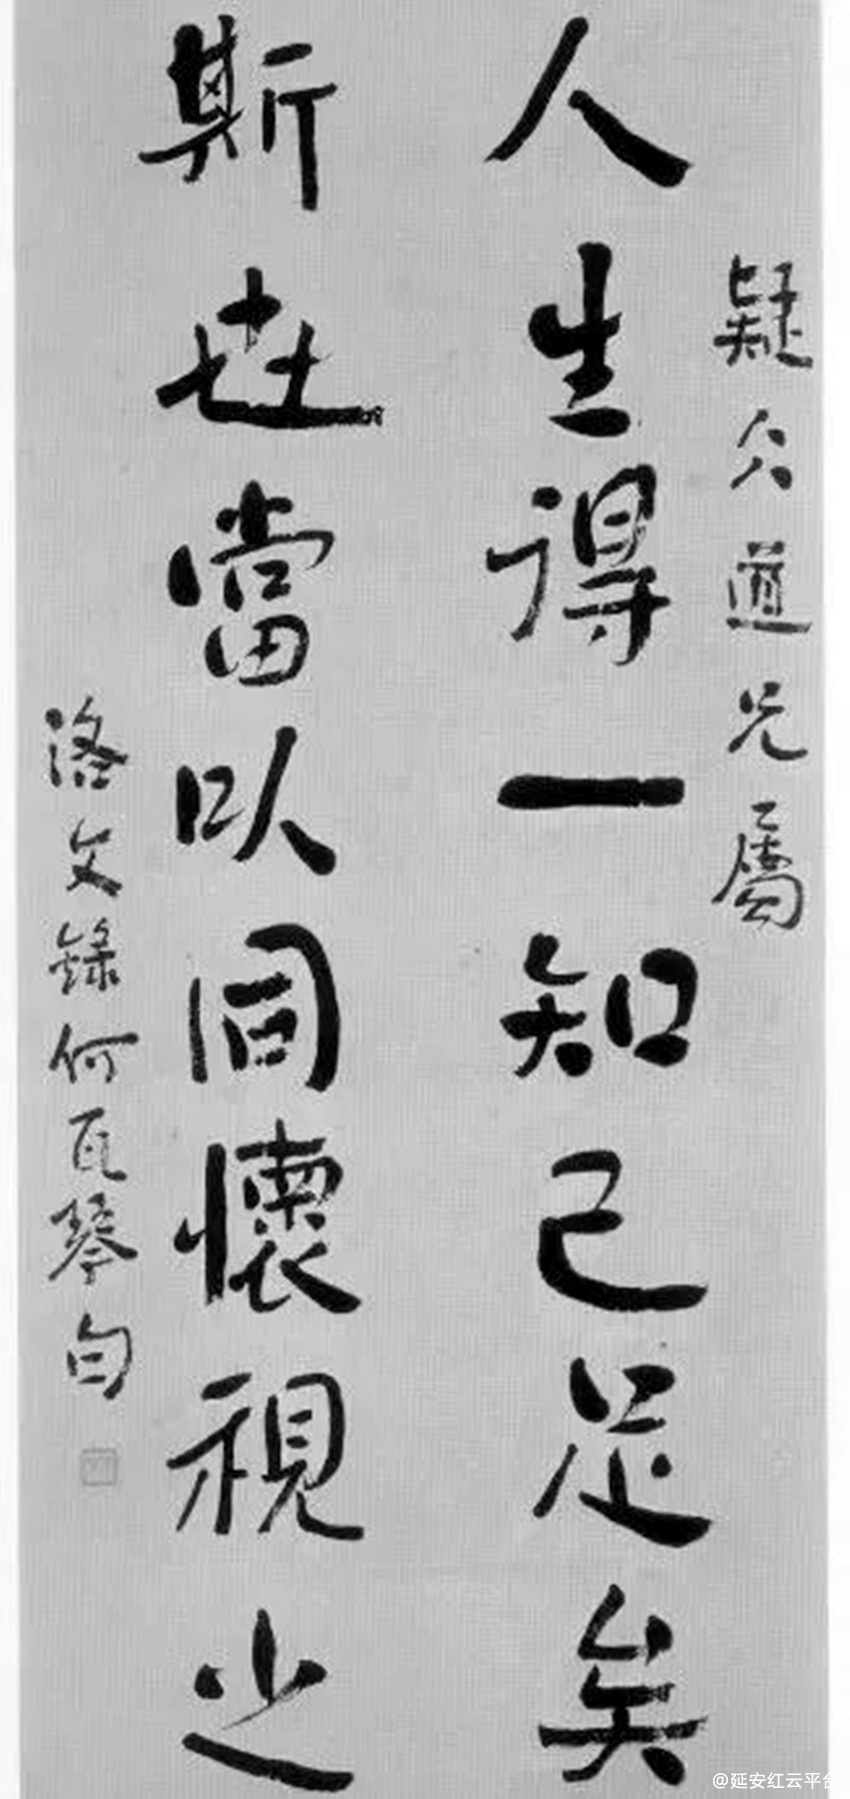 疑仌道兄屬
人生得一知己足矣
斯世當以同懷視之
洛文錄何瓦琴句
@延安红云平台